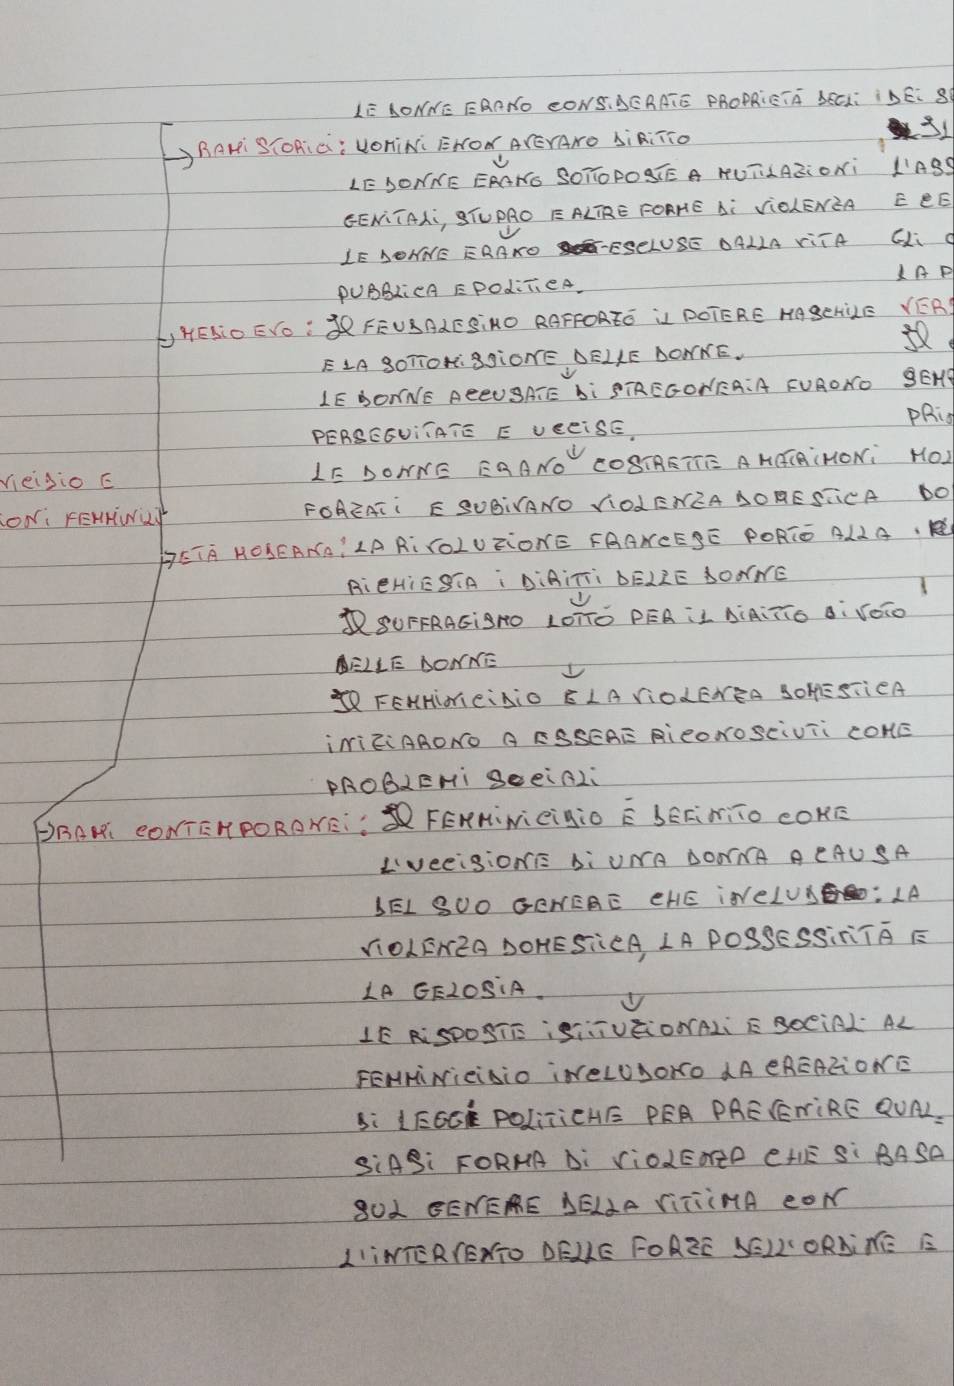 LE DONNE ERANO CONSIDERATE PROPRIETÀ DEGLI
→ RAMI STORICI: UOMINI E NON AVEVANO DIRITTO
↓
LE DONNE ERANO SOTTOPOSTE A MUTILAZIONI
GENITALI, STUPRO E ALTRE FORME DI VIOLENZA
↓
LE DONNE ERANO ESCLUSE DALLA VITA
PUBBLICA E POLITICA.
→ MEDIO EVO: IL FEUDALESIMO RAFFORZÓ IL POTERE MASCHILE
E LA SOTTOMISSIONE DELLE DONNE.
↓
LE DONNE ACCUSATE DI STREGONERIA FURONO
PERSEGUITATE E UCCISE.
↓
LE DONNE ERANO COSTRETTE A MATRIMONI
FORZATI E SUBIVANO VIOLENZA DOMESTICA
VICIDIO E
IONI FEMMINILI
→ ETÀ MODERNA: LA RIVOLUZIONE FRANCESE PORTÓ ALLA
RICHIESTA I DIRITTI DELLE DONNE
↓
IL SUFFRAGISMO LOTTÓ PER IL DIRITTO DI VOTO
DELLE DONNE
↓
IL FEMMINICIDIO E LA VIOLENZA DOMESTICA
INIZIARONO A ESSERE RICONOSCIUTI COME
PROBLEMI SOCIALI
→ RAMI CONTEMPORANEI: IL FEMMINICIDIO È DEFINITO COME
L'UCCISIONE DI UNA DONNA A CAUSA
DEL SUO GENERE CHE INCLUD: LA
VIOLENZA DOMESTICA, LA POSSESSIVITÀ E
LA GELOSIA.
↓
LE RISPOSTE ISTITUZIONALI E SOCIALI AL
FEMMINICIDIO INCLUDONO LA CREAZIONE
DI LEGGI POLITICHE PER PREVENIRE QUAL=
SIASI FORMA DI VIOLENZA CHE SI BASA
SUL GENERE DELLA VITTIMA CON
L'INTERVENTO DELLE FORZE DELL'ORDINE E
DEI
L'ABS
GLI
LA P
VER
IL
SEMP
PRI
MOL
DO